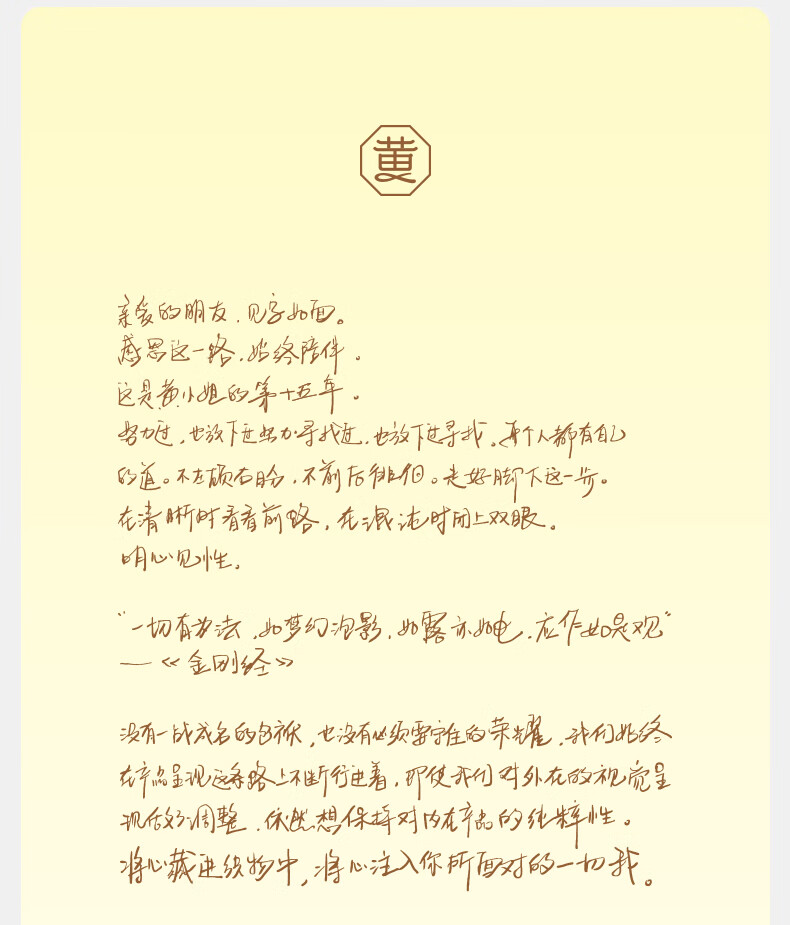 黄
亲爱的朋友，见字如面。
感恩这一路，始终陪伴。
这是黄小姐的第十五年。
努力过，也放下过努力寻找过，也放下过寻找。每个人都有自己
的道。不左顾右盼，不前后徘徊。走好脚下这一步。
在清晰时看看前路，在混沌时闭上双眼。
明心见性。
“一切有为法，如梦幻泡影，如露亦如电，应作如是观”
—《金刚经》
没有一战成名的包袱，也没有必须要守住的荣耀，我们始终
在产品呈现这条路上不断行进着，即使我们对外在的视觉呈
现做了调整，依然想保持对内在产品的纯粹性。
将心藏进织物中，将心注入你所面对的一切我。